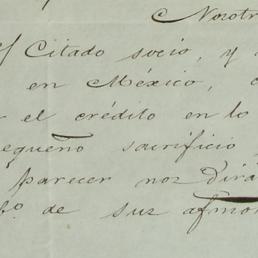 Nosotr
Citado socio, y
en México,
el crédito en lo
equeño sacrificio
parecer nos dirá
de sus afmo